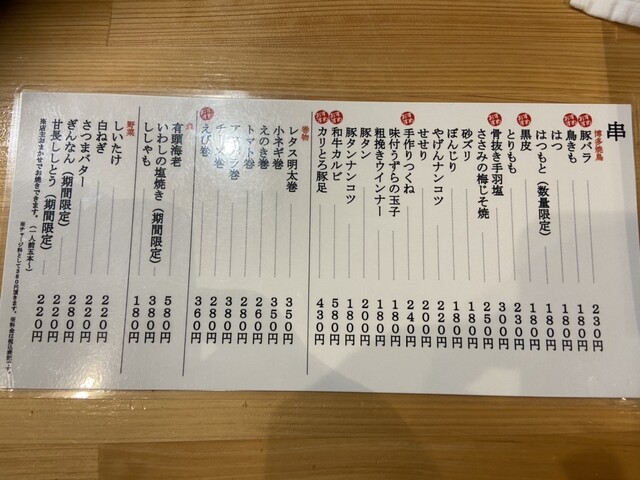 串
博多焼鳥
豚バラ 230円
鳥きも 180円
はつ 180円
はつもと（数量限定） 180円
黒皮 180円
とりもも 230円
骨抜き手羽塩 300円
ささみの梅じそ焼 250円
砂ズリ 180円
ぼんじり 180円
やげんナンコツ 220円
せせり 200円
手作りつくね 240円
味付うずらの玉子 180円
粗挽きウインナー 180円
豚タン 200円
豚タンナンコツ 180円
和牛カルビ 580円
カリとろ豚足 430円
巻物
レタス明太巻 350円
小ネギ巻 350円
えのき巻 260円
トマト巻 280円
アスパラ巻 380円
チーズ巻 280円
えび巻 360円
魚
有頭海老 580円
いわしの塩焼き（期間限定） 380円
ししゃも 180円
野菜
しいたけ 220円
白ねぎ 220円
さつまバター 280円
ぎんなん（期間限定） 220円
甘長ししとう（期間限定） 220円
当店主おまかせでお焼きできます。（一人前五本〜）
※チャージ料として380円頂きます。※料金は税込表示です。